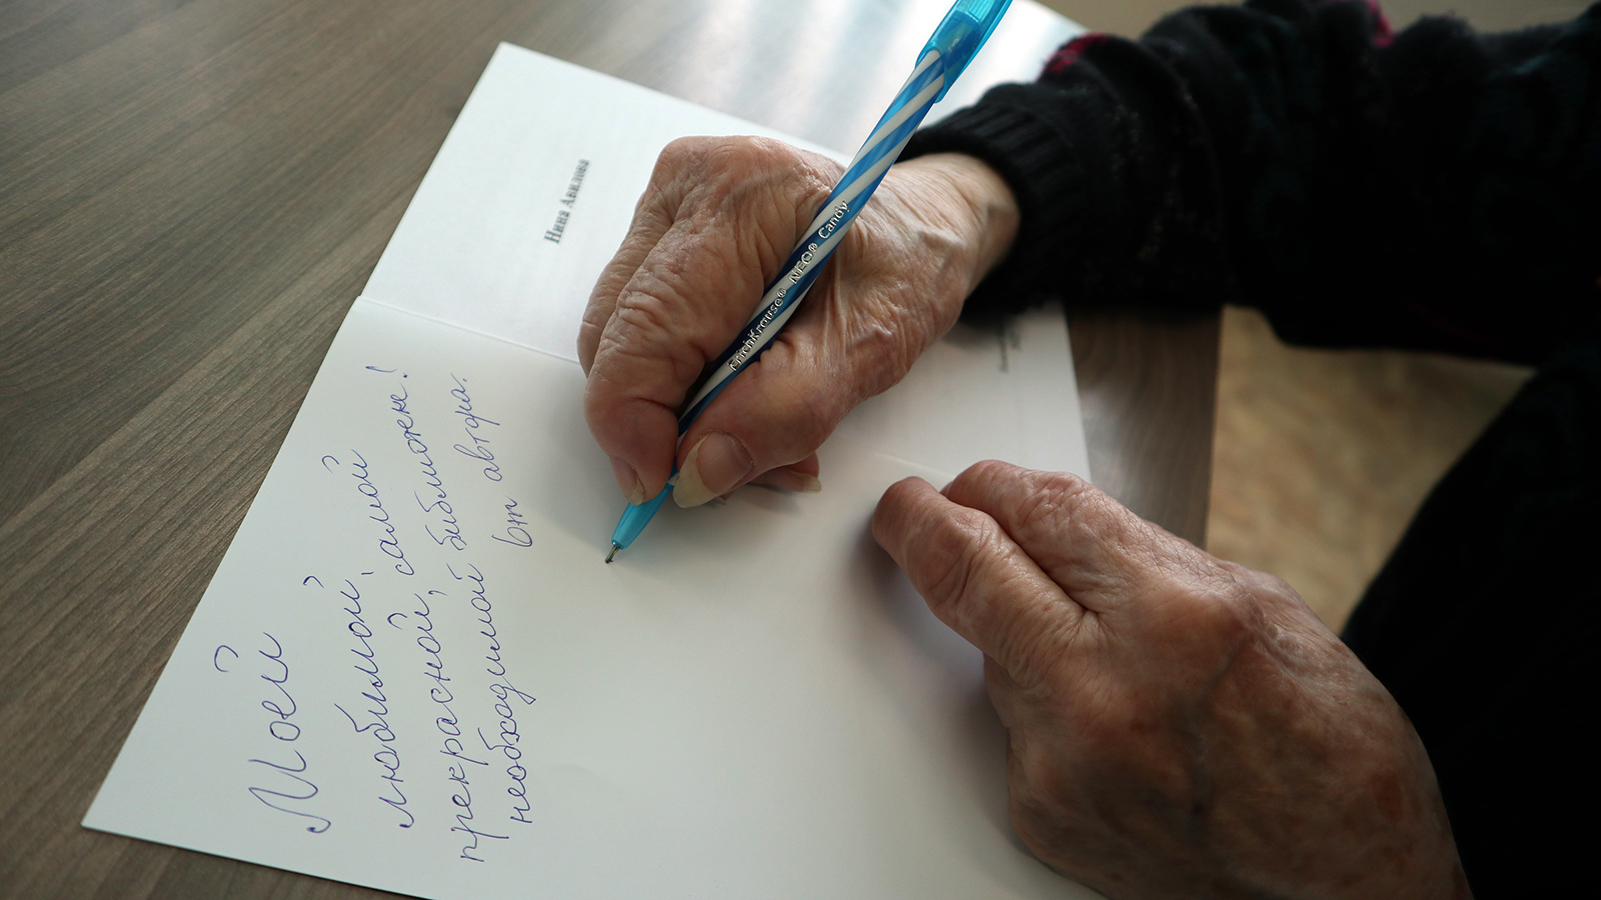 Нина Авилова
Моей
любимой, самой
прекрасной, библиотеке!
необходимой
от автора.
ErichKrause® NEO® Candy